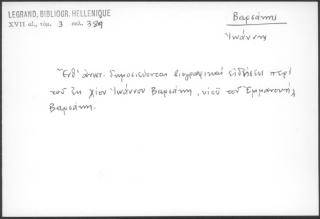 LEGRAND, BIBLIOGR. HELLENIQUE
XVII αἰ., τόμ. 3 σελ. 389
Βαρσάμης
Ἰωάννης
Ἔνθ' ἀνωτ. δημοσιεύονται βιογραφικαὶ εἰδήσεις περὶ
τοῦ ἐκ Χίου Ἰωάννου Βαρσάμη, υἱοῦ τοῦ Ἐμμανουὴλ
Βαρσάμη.